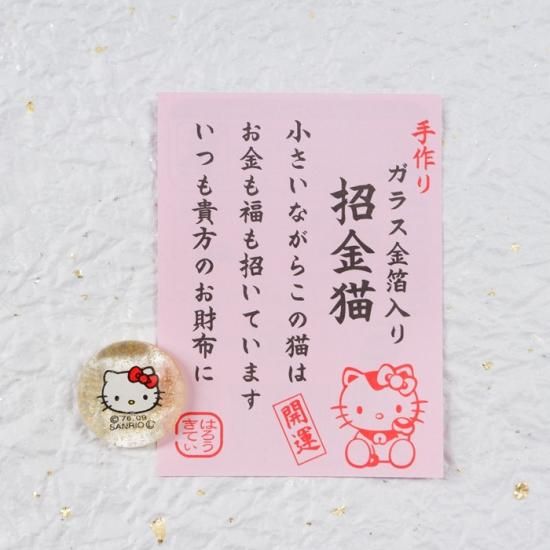 手作り
ガラス金箔入り
招金猫
小さいながらこの猫は
お金も福も招いています
いつも貴方のお財布に
開運
はろう
きてぃ
©'76,09
SANRIO